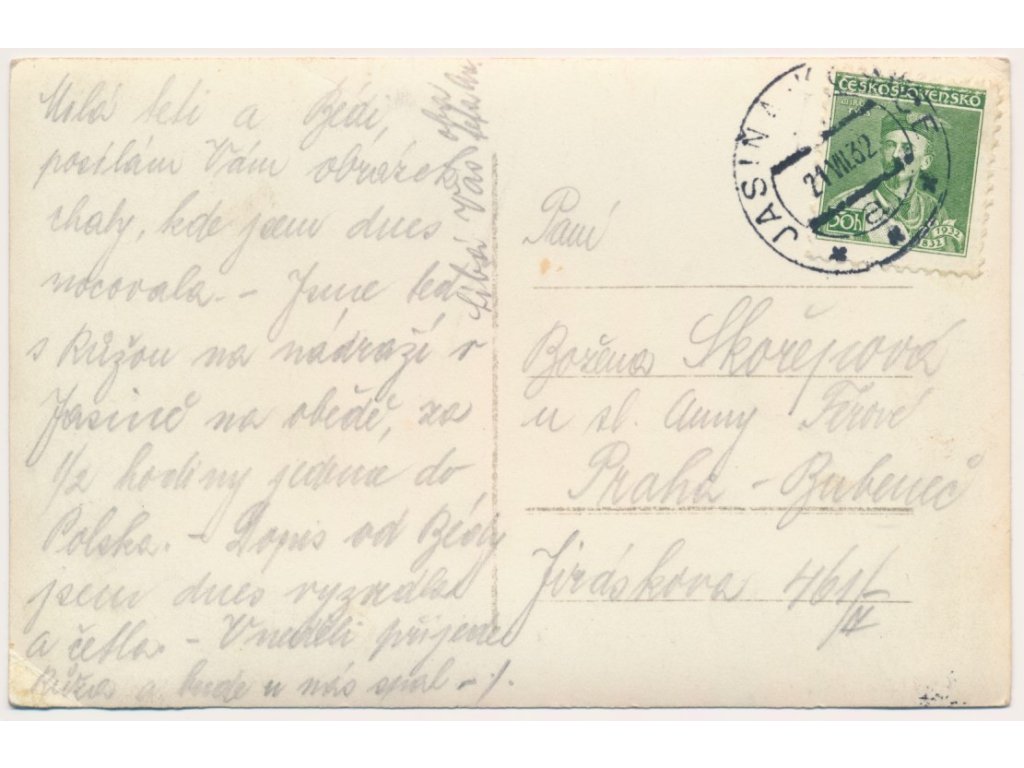 Milá teti a Bédi,
posílám Vám obrázek
chaty, kde jsem dnes
nocovala. – Jsme teď
s Růžou na nádraží v
Jasině na obědě, za
1/2 hodiny jedeme do
Polska. – Dopis od Bédy
jsem dnes vyzvedla
a četla. – V neděli přijede
Růža a bude u nás spal –/.
líbá Vás oba
ČESKOSLOVENSKO
50h
1932
1832
JASINA
21.VII.32
a
Paní
Božena Skořepová
u sl. Anny Férové
Praha – Bubeneč
Jiráskova 461/